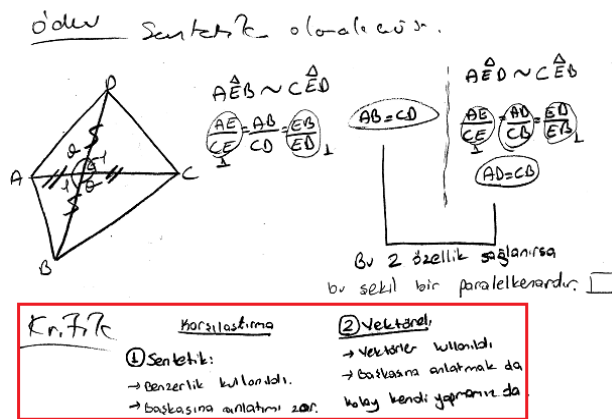 ödev Sentetik olarak
D
A
C
B
AÊB ~ CÊD
AE/CE = AB/CD = EB/ED
1 1
AB = CD
AÊD ~ CÊB
AE/CE = AD/CB = ED/EB
1 1
AD = CB
Bu 2 özellik sağlanırsa
bu şekil bir paralelkenardır.
Kritik
Karşılaştırma
① Sentetik:
→ Benzerlik kullanıldı.
→ Başkasına anlatımı zor.
② Vektörel:
→ Vektörler kullanıldı
→ Başkasına anlatmak da
kolay kendi yapmanız da